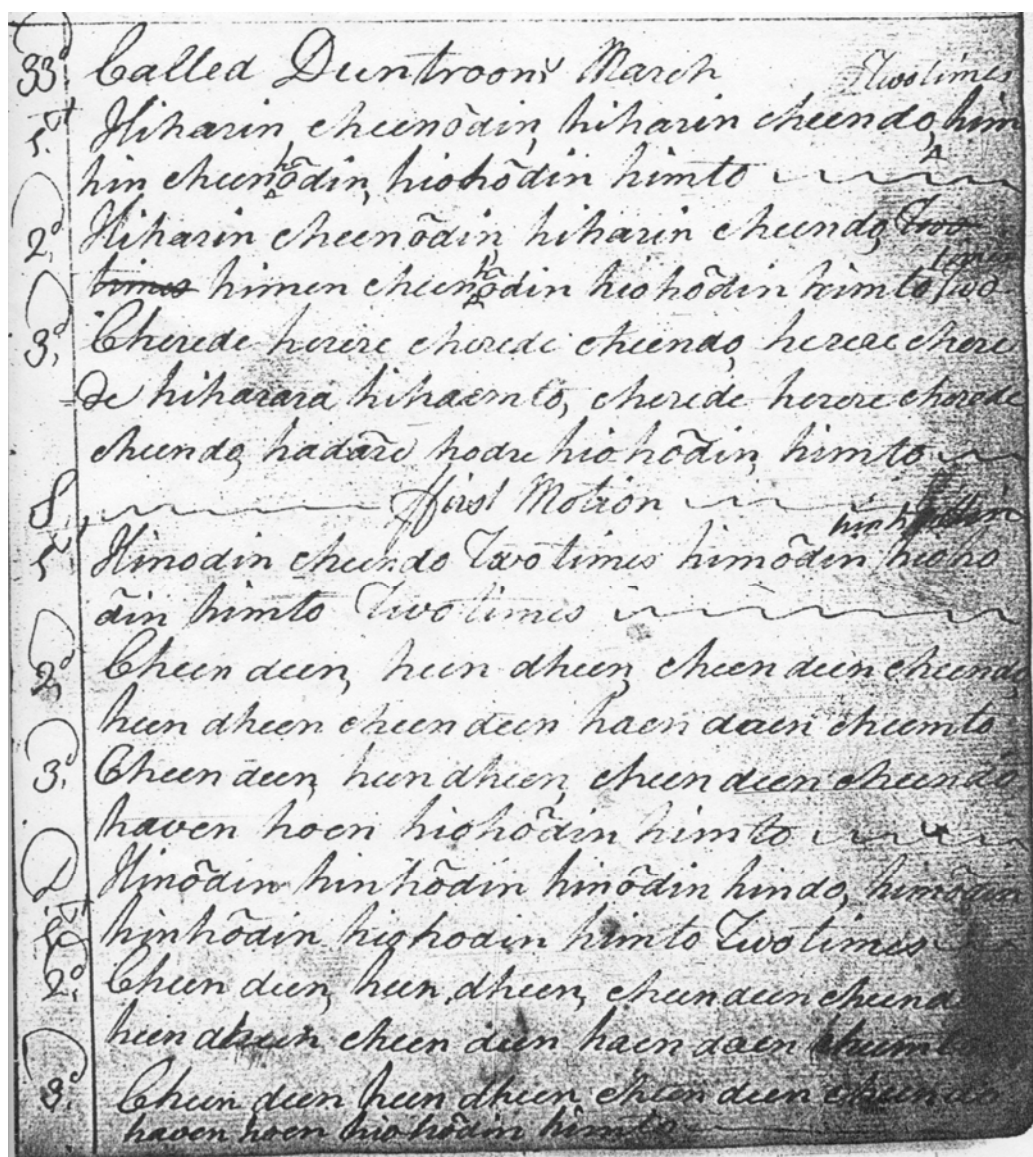 33d. Called Duntroons March Two times
1st. Hiharin, cheenõdin, hiharin cheendo, him
hin cheenhõdin, hiohõdin himto
2d. Hiharin cheenõdin hiharin cheendo, Two
times himen cheenhõdin hiohõdin himto Two times
3d. Cherede herere cherede cheendo, herere chere
de hiharara hihaemto, cherede herere cherede
cheendo, hadãre hodre hiohõdin, himto
first Motion
1st. Hinodin cheendo Two times himõdin hioho
din himto Two times
2d. Cheen deen, heen dheen, cheen deen cheendo
heen dheen cheen deen haen daen cheemto
3d. Cheen deen, heen dheen, cheen deen cheendo
haven hoen hiohõdin himto
D Hinõdin hinhõdin hinõdin hindo, himõdin
1st. hinhõdin hiohodin himto Two times
2d. Cheen deen, heen dheen, cheen deen cheendo
heen dheen cheen deen haen daen cheemto
3d. Cheen deen heen dheen cheen deen cheendo
haven hoen hiohõdin himto